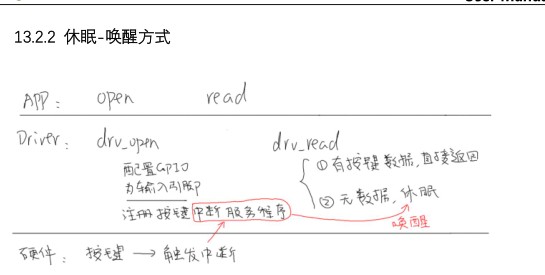 User Manual
13.2.2 休眠-唤醒方式
APP: open read
Driver: drv_open drv_read
配置GPIO
为输入引脚
注册按键中断服务程序
① 有按键数据,直接返回
② 无数据,休眠
唤醒
硬件: 按键 → 触发中断